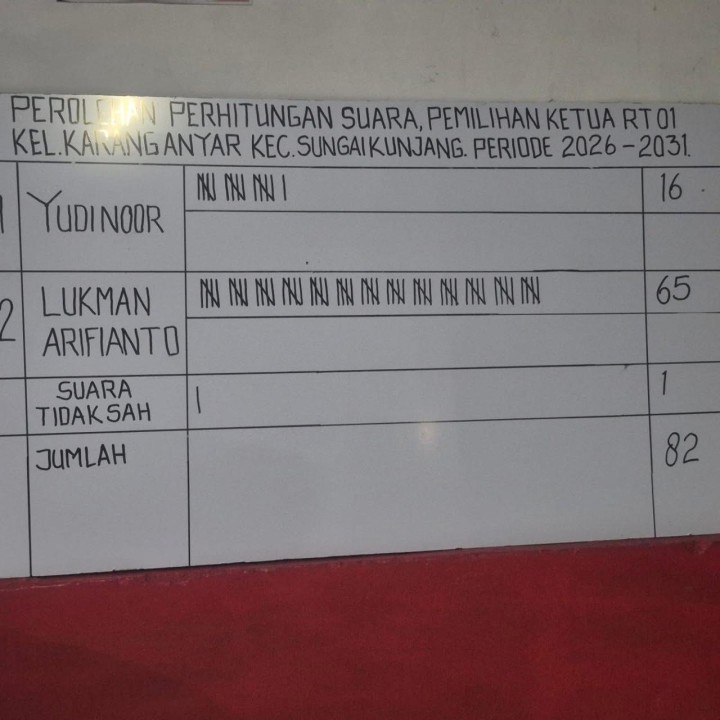 PEROLEHAN PERHITUNGAN SUARA, PEMILIHAN KETUA RT 01
KEL. KARANG ANYAR KEC. SUNGAI KUNJANG. PERIODE 2026-2031.
1 YUDINOOR 16
2 LUKMAN ARIFIANTO 65
SUARA TIDAK SAH 1
JUMLAH 82